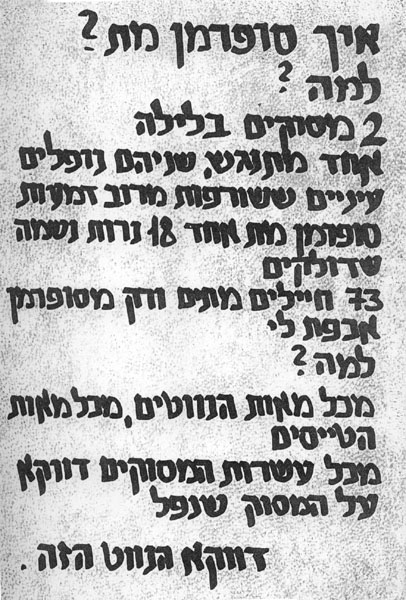 איך סופרמן מת?
למה?
2 מסוקים בלילה
אחד מתנגש, שניהם נופלים
עיניים ששורפות מרוב דמעות
סופרמן מת אחד 18 נרות נשמה
שדולקים
73 חיילים מתים ורק מסופרמן
אכפת לי
למה?
מכל מאות הנווטים, מכל מאות
הטייסים
מכל עשרות המסוקים דווקא
על המסוק שנפל
דווקא הנווט הזה.